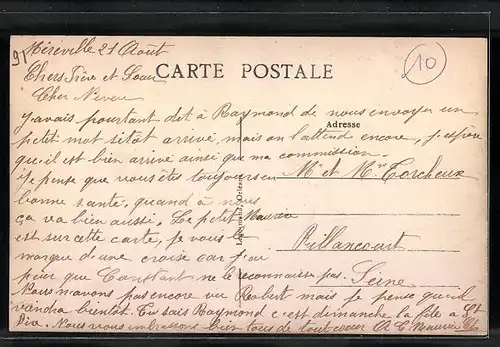 91
Méréville 21 Août
10
Chers Frère et Soeur
CARTE POSTALE
Cher Neveu
j'avais pourtant dit à Raymond de nous envoyer un
Adresse
petit mot sitôt arrivé, mais on l'attend encore, j'espère
qu'il est bien arrivé ainsi que ma commission.
Mr et Mme Torcheux
je pense que vous êtes toujours en
bonne santé, quand à nous
ça va bien aussi. Le petit Maurice
est sur cette carte, je vous le
Billancourt
marque d'une croise car j'ai
peur que Constant ne le reconnaisse pas.
Seine
Nous n'avons pas encore vu Robert mais je pense qu'il
viendra bientôt. Tu sais Raymond c'est dimanche la fête à St
Nous vous embrassons bien tous de tout coeur